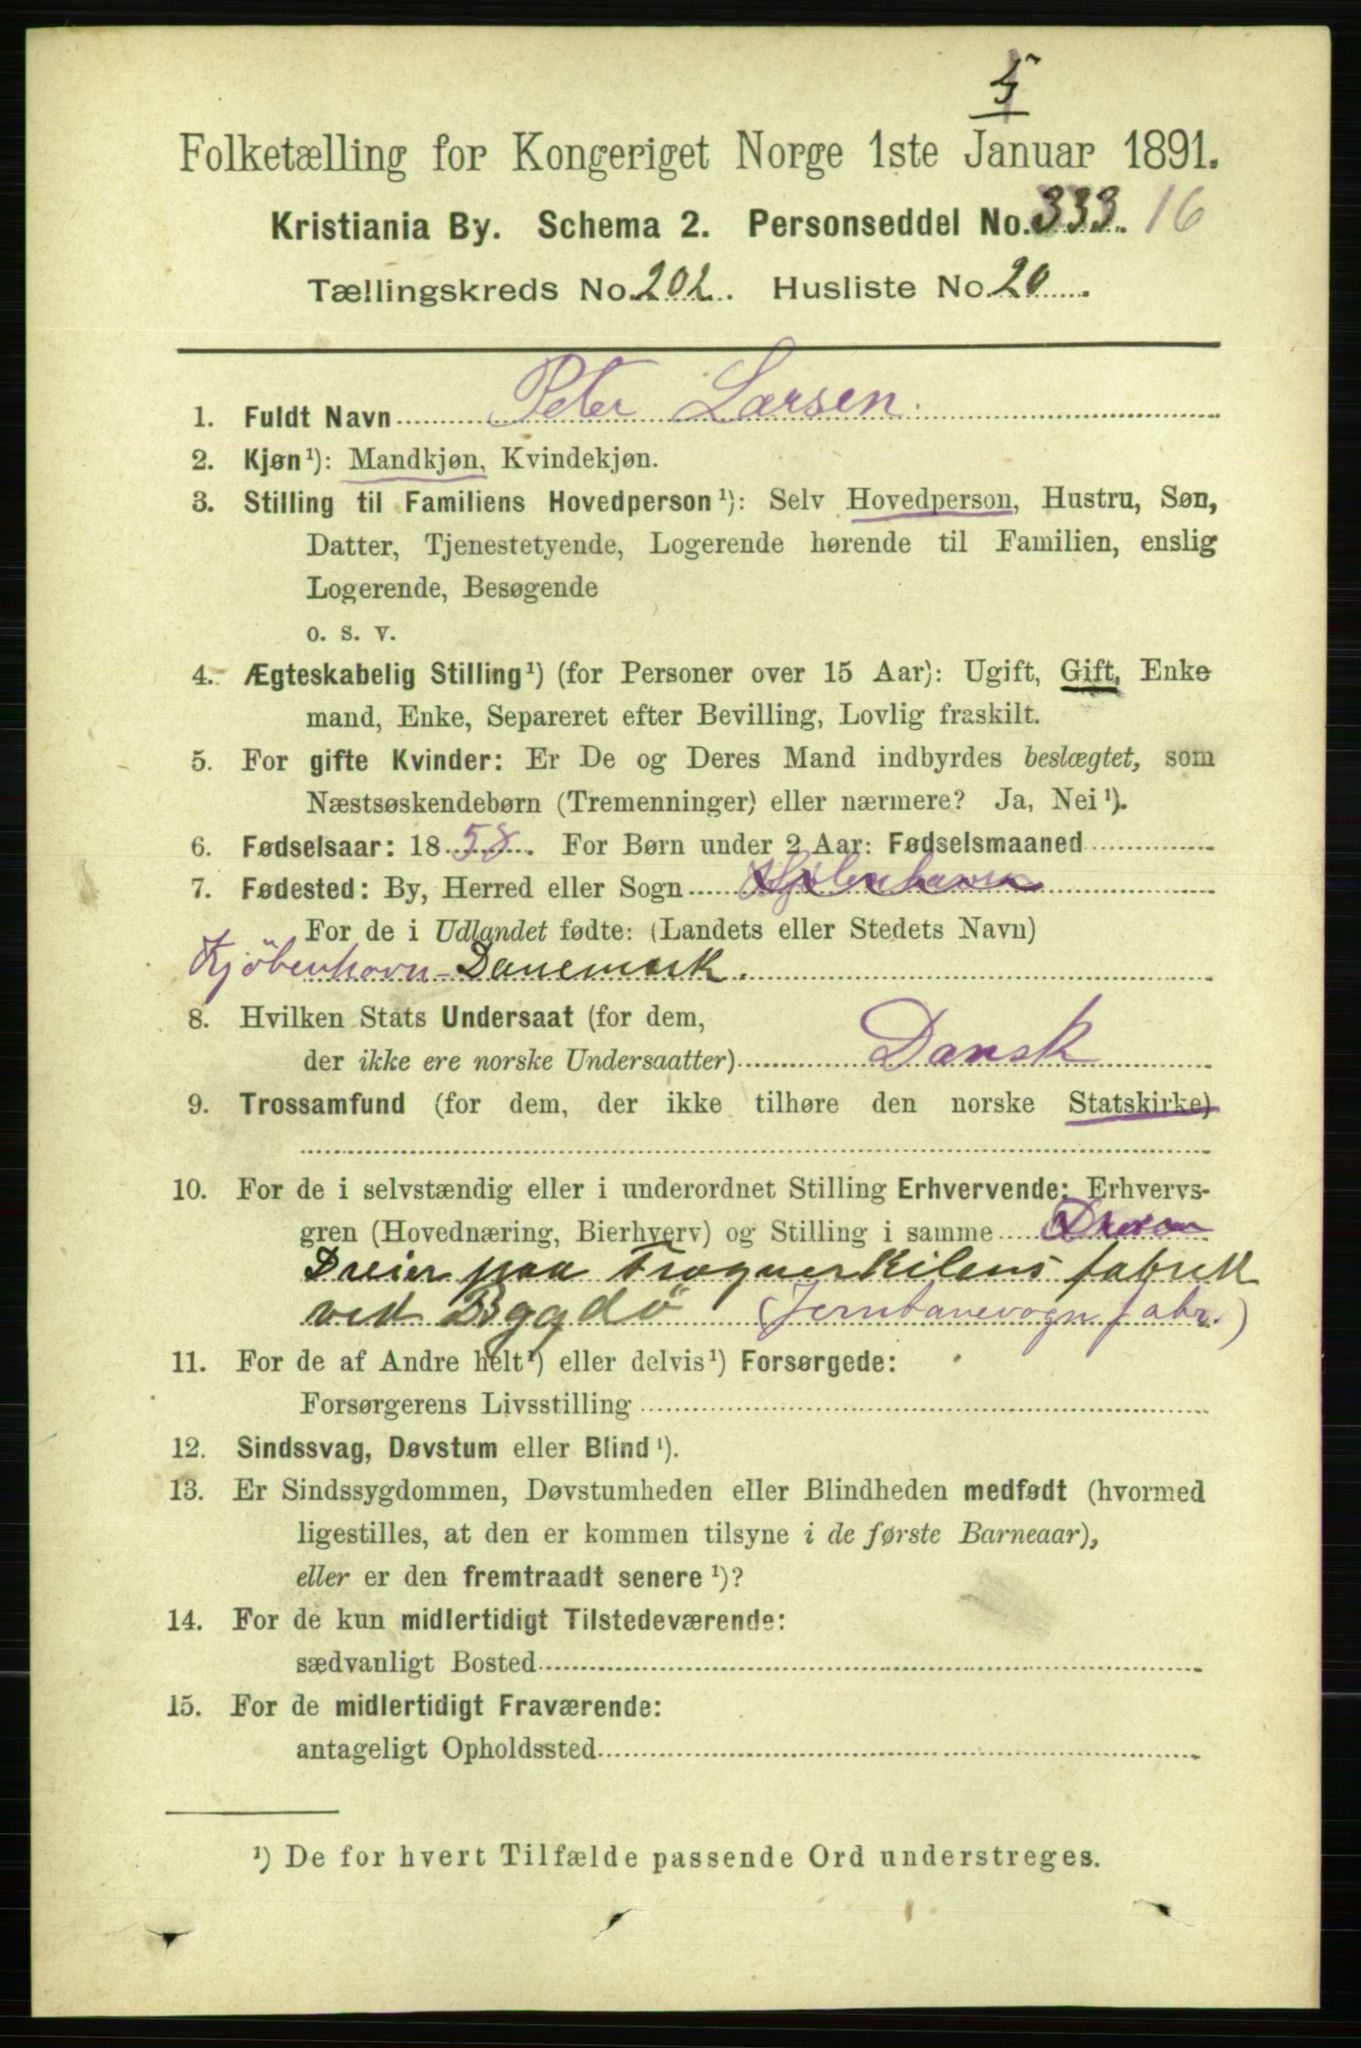 5
Folketælling for Kongeriget Norge 1ste Januar 1891.
Kristiania By. Schema 2. Personseddel No. 333. 16
Tællingskreds No. 202. Husliste No. 20
1. Fuldt Navn Peter Larsen.
2. Kjøn¹): Mandkjøn, Kvindekjøn.
3. Stilling til Familiens Hovedperson¹): Selv Hovedperson, Hustru, Søn,
Datter, Tjenestetyende, Logerende hørende til Familien, enslig
Logerende, Besøgende
o. s. v.
4. Ægteskabelig Stilling¹) (for Personer over 15 Aar): Ugift, Gift, Enke
mand, Enke, Separeret efter Bevilling, Lovlig fraskilt.
5. For gifte Kvinder: Er De og Deres Mand indbyrdes beslægtet, som
Næstsøskendebørn (Tremenninger) eller nærmere? Ja, Nei¹).
6. Fødselsaar: 1858. For Børn under 2 Aar: Fødselsmaaned
7. Fødested: By, Herred eller Sogn
For de i Udlandet fødte: (Landets eller Stedets Navn)
Kjöbenhavn - Danemark.
8. Hvilken Stats Undersaat (for dem,
der ikke ere norske Undersaatter) Dansk
9. Trossamfund (for dem, der ikke tilhøre den norske Statskirke)
10. For de i selvstændig eller i underordnet Stilling Erhvervende: Erhvervs-
gren (Hovednæring, Bierhverv) og Stilling i samme
Dreier paa Frognerkilens fabrik
ved Bygdö (Jernbanevogn fabr.)
11. For de af Andre helt¹) eller delvis¹) Forsørgede:
Forsørgerens Livsstilling
12. Sindssvag, Døvstum eller Blind¹).
13. Er Sindssygdommen, Døvstumheden eller Blindheden medfødt (hvormed
ligestilles, at den er kommen tilsyne i de første Barneaar),
eller er den fremtraadt senere¹)?
14. For de kun midlertidigt Tilstedeværende:
sædvanligt Bosted
15. For de midlertidigt Fraværende:
antageligt Opholdssted
¹) De for hvert Tilfælde passende Ord understreges.